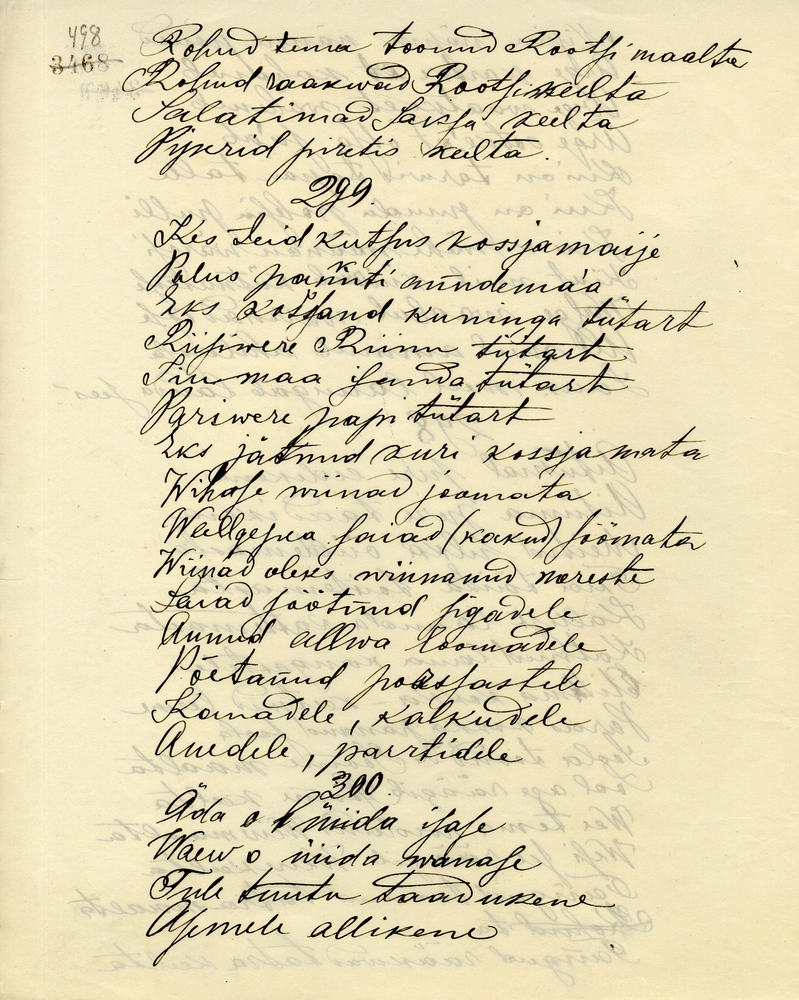 498
3468
Rohud tema toonud Rootsi maalta
Rohud raakwad Rootsi keelta
Salatimad Saksa keelta
Pipsrid piretis keelta.
299.
Kes Teid kutsus kossjamaije
Palus pankuti muudema'a
Eks kossjand kuninga tütart
Riisiwere Riinu tütart
Siu maa isanda tütart
Pariwere papi tütart
Eks jätnud kuri kossja mata
Wihase wiinad joomata
Wallgepea saiad (kakud) söömata
Wiinad oleks winnanud noreste
Saiad söötnud sigadele
Annud allwa loomadele
Põetanud põrsjastele
Kanadele, kalkudele
Anedele, parrtidele
300.
Äda o üüida isase
Waew o üüida wanase
Tule tuutu taadukene
Asemele allikene